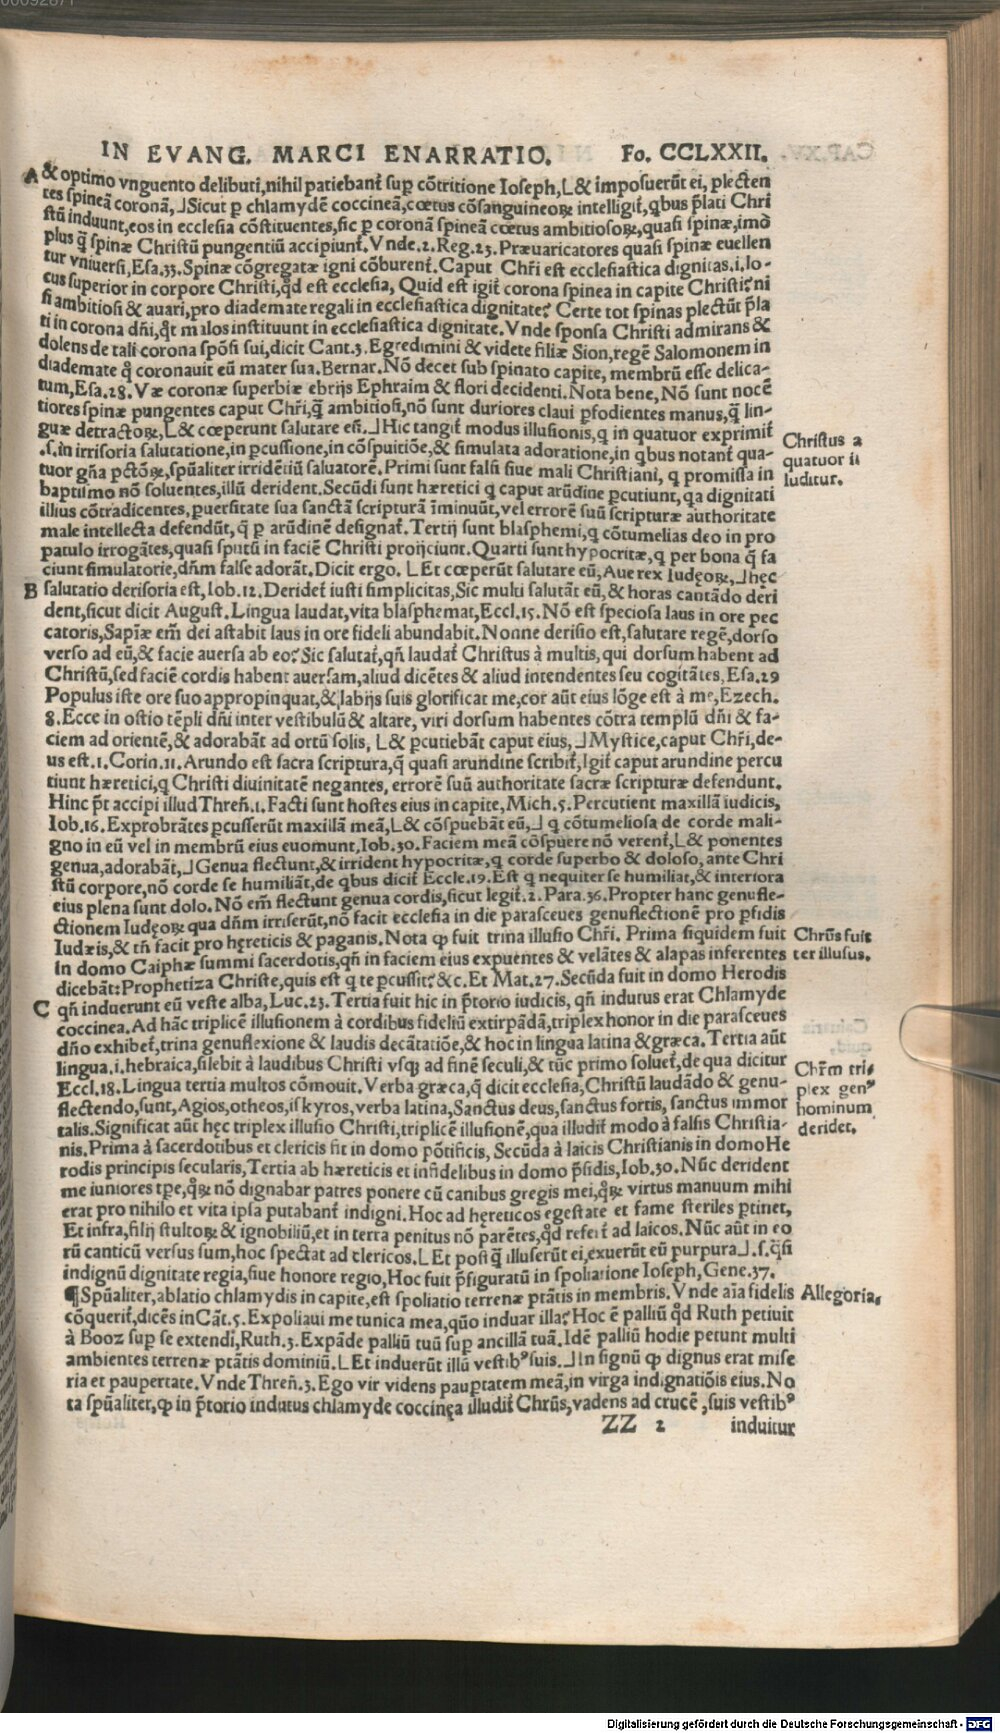 00092871
IN EVANG. MARCI ENARRATIO. Fo. CCLXXII.
A & optimo vnguento delibuti, nihil patiebant᷑ sup̱ cõtritione Ioseph, L& imposuerũt ei, plecten
tes spineã coronã, ⅃Sicut p̱ chlamydẽ coccineã, cœtus cõsanguineoꝝ intelligit᷑, qbus p̃lati Chri
stũ induunt, eos in ecclesia cõstituentes, sic p̱ coronã spineã cœtus ambitiosoꝝ, quasi spinæ, imò
plus q̃ spinæ Christũ pungentiũ accipiunt᷑. Vnde. 2. Reg. 23. Præuaricatores quasi spinæ euellen
tur vniuersi, Esa. 33. Spinæ cõgregatæ igni cõburent᷑. Caput Chr̃i est ecclesiastica dignitas. i. lo-
cus superior in corpore Christi, qd̃ est ecclesia, Quid est igit᷑ corona spinea in capite Christi? ni
si ambitiosi & auari, pro diademate regali in ecclesiastica dignitate? Certe tot spinas plectũt p̃la
ti in corona dñi, qt̃ malos instituunt in ecclesiastica dignitate. Vnde sponsa Christi admirans &
dolens de tali corona spõsi sui, dicit Cant. 3. Egredimini & videte filiæ Sion, regẽ Salomonem in
diademate q̃ coronauit eũ mater sua. Bernar. Nõ decet sub spinato capite, membrũ esse delica-
tum, Esa. 28. Væ coronæ superbiæ ebrijs Ephraim & flori decidenti. Nota bene, Nõ sunt nocẽ
tiores spinæ pungentes caput Chr̃i, q̃ ambitiosi, nõ sunt duriores claui p̱fodientes manus, q̃ lin-
guæ detractoꝝ, L& cœperunt salutare eũ. ⅃Hic tangit᷑ modus illusionis, q in quatuor exprimit᷑
.s. in irrisoria salutatione, in p̱cussione, in cõspuitiõe, & simulata adoratione, in qbus notant᷑ qua-
tuor gña pctõꝝ, spũaliter irridẽtiũ saluatorẽ. Primi sunt falsi siue mali Christiani, q promissa in
baptismo nõ soluentes, illũ derident. Secũdi sunt hæretici q caput arũdine p̱cutiunt, qa dignitati
illius cõtradicentes, p̱uersitate sua sanctã scripturã ĩminuũt, vel errorẽ suũ scripturæ authoritate
male intellecta defendũt, q̃ p̱ arũdinẽ designat᷑. Tertij sunt blasphemi, q cõtumelias deo in pro
patulo irrogãtes, quasi sputũ in faciẽ Christi proijciunt. Quarti sunt hypocritæ, q per bona q̃ fa
ciunt simulatorie, dñm false adorãt. Dicit ergo. LEt cœperũt salutare eũ, Aue rex Iudęoꝝ, ⅃hęc
B salutatio derisoria est, Iob. 12. Deridet᷑ iusti simplicitas, Sic multi salutãt eũ, & horas cantãdo deri
dent, sicut dicit August. Lingua laudat, vita blasphemat, Eccl. 15. Nõ est speciosa laus in ore pec
catoris, Sapĩæ em̃ dei astabit laus in ore fideli abundabit. Nonne derisio est, salutare regẽ, dorso
verso ad eũ, & facie auersa ab eo? Sic salutat᷑, qñ laudat᷑ Christus à multis, qui dorsum habent ad
Christũ, sed faciẽ cordis habent auersam, aliud dicẽtes & aliud intendentes seu cogitãtes, Esa. 29
Populus iste ore suo appropinquat, & labijs suis glorificat me, cor aũt eius lõge est à me, Ezech.
8. Ecce in ostio tẽpli dñi inter vestibulũ & altare, viri dorsum habentes cõtra templũ dñi & fa-
ciem ad orientẽ, & adorabãt ad ortũ solis, L& p̱cutiebãt caput eius, ⅃Mystice, caput Chr̃i, de-
us est. 1. Corin. 11. Arundo est sacra scriptura, q̃ quasi arundine scribit᷑, Igit᷑ caput arundine percu
tiunt hæretici, q Christi diuinitatẽ negantes, errorẽ suũ authoritate sacræ scripturæ defendunt.
Hinc p̃t accipi illud Threñ. 1. Facti sunt hostes eius in capite, Mich. 5. Percutient maxillã iudicis,
Iob. 16. Exprobrãtes p̱cusserũt maxillã meã, L& cõspuebãt eũ, ⅃ q cõtumeliosa de corde mali-
gno in eũ vel in membrũ eius euomunt, Iob. 30. Faciem meã cõspuere nõ verent᷑, L& ponentes
genua, adorabãt, ⅃Genua flectunt, & irrident hypocritæ, q corde superbo & doloso, ante Chri
stũ corpore, nõ corde se humiliãt, de qbus dicit᷑ Eccle. 19. Est q nequiter se humiliat, & interiora
eius plena sunt dolo. Nõ em̃ flectunt genua cordis, sicut legit᷑. 2. Para. 36. Propter hanc genufle-
ctionem Iudęoꝝ qua dñm irriserũt, nõ facit ecclesia in die parasceues genuflectionẽ pro p̱fidis
Iudæis, & tñ facit pro hęreticis & paganis. Nota ꝙ fuit trina illusio Chr̃i. Prima siquidem fuit
in domo Caiphæ summi sacerdotis, qñ in faciem eius expuentes & velãtes & alapas inferentes
dicebãt: Prophetiza Christe, quis est q te p̱cussit? &c. Et Mat. 27. Secũda fuit in domo Herodis
C qñ induerunt eũ veste alba, Luc. 23. Tertia fuit hic in p̃torio iudicis, qñ indutus erat Chlamyde
coccinea. Ad hãc triplicẽ illusionem à cordibus fideliũ extirpãdã, triplex honor in die parasceues
dño exhibet᷑, trina genuflexione & laudis decãtatiõe, & hoc in lingua latina & græca. Tertia aũt
lingua. i. hebraica, silebit à laudibus Christi vsqȝ ad finẽ seculi, & tũc primo soluet᷑, de qua dicitur
Eccl. 18. Lingua tertia multos cõmouit. Verba græca, q̃ dicit ecclesia, Christũ laudãdo & genu-
flectendo, sunt, Agios, otheos, iskyros, verba latina, Sanctus deus, sanctus fortis, sanctus immor
talis. Significat aũt hęc triplex illusio Christi, triplicẽ illusionẽ, qua illudit᷑ modo à falsis Christia-
nis. Prima à sacerdotibus et clericis fit in domo põtificis, Secũda à laicis Christianis in domo He
rodis principis secularis, Tertia ab hæreticis et infidelibus in domo p̃sidis, Iob. 30. Nũc derident
me iuniores tp̱e, qꝝ̃ nõ dignabar patres ponere cũ canibus gregis mei, qꝝ̃ virtus manuum mihi
erat pro nihilo et vita ipsa putabant᷑ indigni. Hoc ad hęreticos egestate et fame steriles p̱tinet,
Et infra, filij stultoꝝ & ignobiliũ, et in terra penitus nõ parẽtes, qd̃ refert᷑ ad laicos. Nũc aũt in eo
rũ canticũ versus sum, hoc spectat ad clericos. LEt postq̃ illuserũt ei, exuerũt eũ purpura⅃. s. q̃si
indignũ dignitate regia, siue honore regio, Hoc fuit p̃figuratũ in spoliatione Ioseph, Gene. 37.
¶Spũaliter, ablatio chlamydis in capite, est spoliatio terrenæ ptãtis in membris. Vnde aĩa fidelis
cõquerit᷑, dicẽs in Cãt. 5. Expoliaui me tunica mea, quõ induar illa? Hoc ẽ palliũ qd̃ Ruth petiuit
à Booz sup̱ se extendi, Ruth. 3. Expãde palliũ tuũ sup̱ ancillã tuã. Idẽ palliũ hodie petunt multi
ambientes terrenæ ptãtis dominiũ. LEt induerũt illũ vestibꝰ suis. ⅃In signũ ꝙ dignus erat mise
ria et paupertate. Vnde Threñ. 3. Ego vir videns paup̱tatem meã, in virga indignatiõis eius. No
ta spũaliter, ꝙ in p̃torio indutus chlamyde coccinęa illudit᷑ Chrũs, vadens ad crucẽ, suis vestibꝰ
ZZ 2 induitur
Christus a
quatuor il
luditur.
Chrũs fuit
ter illusus.
Chr̃m tri-
plex genꝰ
hominum
deridet.
Allegoria.
Digitalisierung gefördert durch die Deutsche Forschungsgemeinschaft - DFG